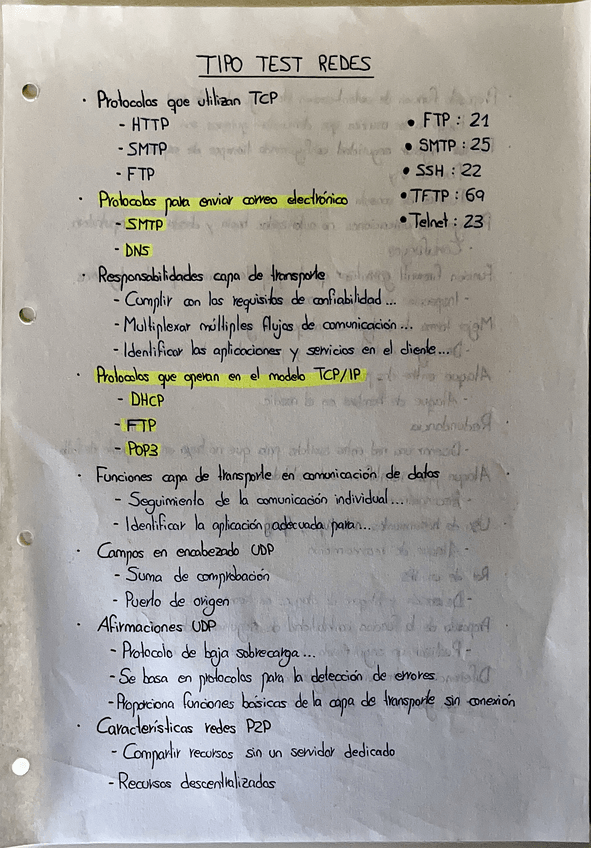 TIPO TEST REDES
· Protocolos que utilizan TCP
- HTTP
- SMTP
- FTP
• FTP : 21
• SMTP : 25
• SSH : 22
• TFTP : 69
• Telnet : 23
· Protocolos para enviar correo electrónico
- SMTP
- DNS
· Responsabilidades capa de transporte
- Cumplir con los requisitos de confiabilidad...
- Multiplexar múltiples flujos de comunicación...
- Identificar las aplicaciones y servicios en el cliente...
· Protocolos que operan en el modelo TCP/IP
- DHCP
- FTP
- POP3
· Funciones capa de transporte en comunicación de datos
- Seguimiento de la comunicación individual...
- Identificar la aplicación adecuada para...
· Campos en encabezado UDP
- Suma de comprobación
- Puerto de origen
· Afirmaciones UDP
- Protocolo de baja sobrecarga...
- Se basa en protocolos para la detección de errores
- Proporciona funciones básicas de la capa de transporte sin conexión
· Características redes P2P
- Compartir recursos sin un servidor dedicado
- Recursos descentralizados